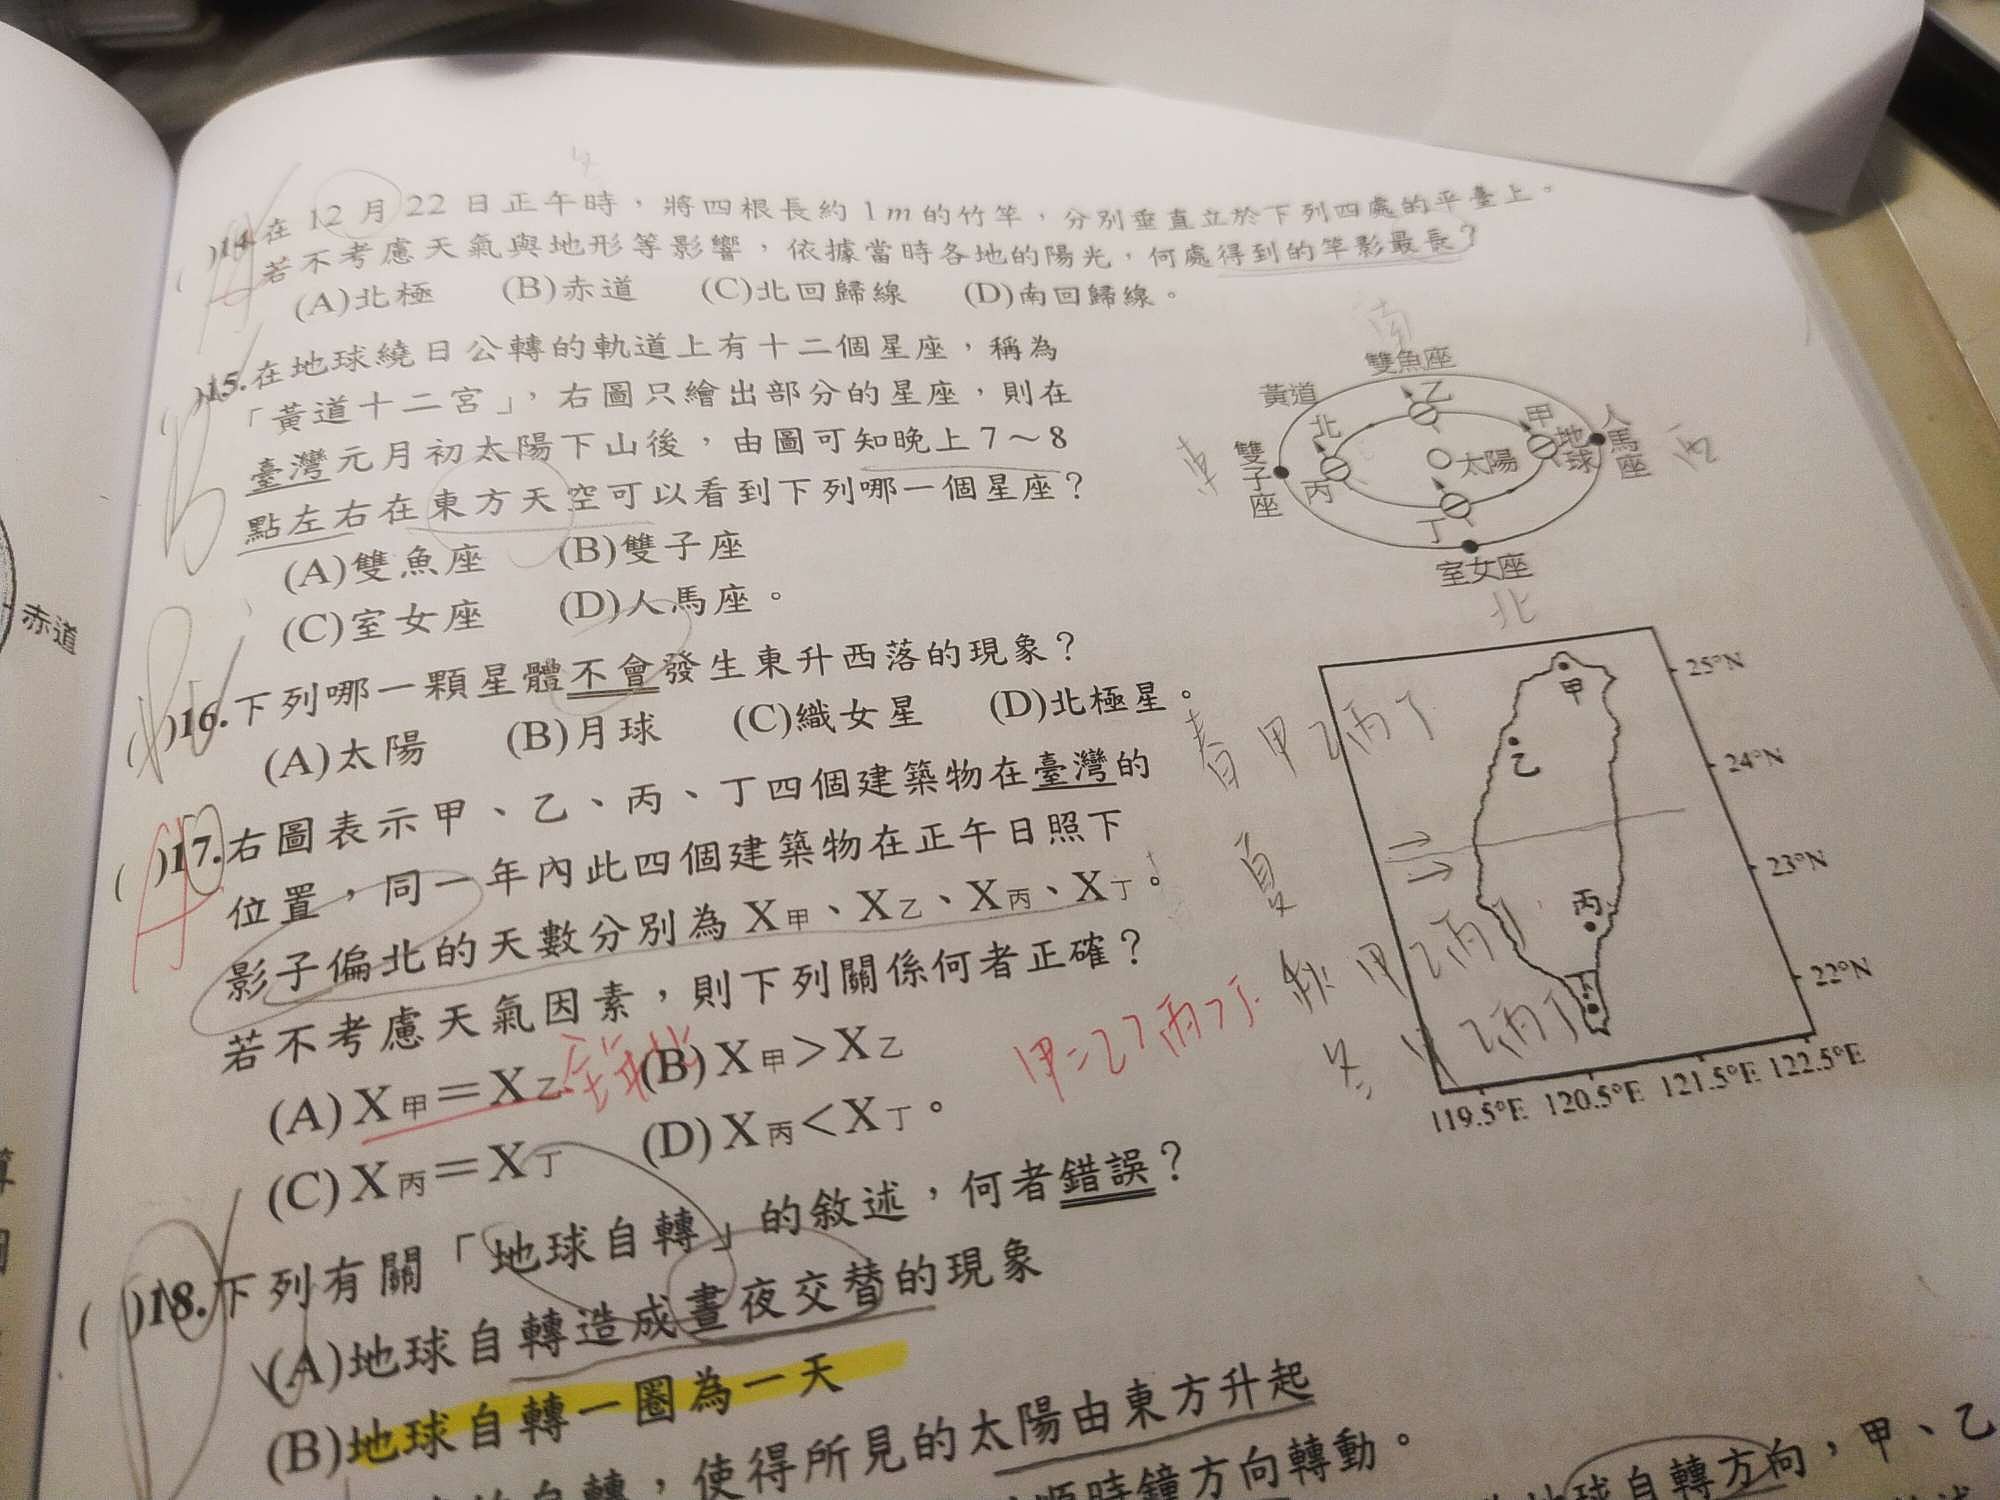 )14.在12月22日正午時，將四根長約1m的竹竿，分別垂直立於下列四處的平臺上。
若不考慮天氣與地形等影響，依據當時各地的陽光，何處得到的竿影最長？
(A)北極 (B)赤道 (C)北回歸線 (D)南回歸線。
)15.在地球繞日公轉的軌道上有十二個星座，稱為
「黃道十二宮」，右圖只繪出部分的星座，則在
臺灣元月初太陽下山後，由圖可知晚上7～8
點左右在東方天空可以看到下列哪一個星座？
(A)雙魚座 (B)雙子座
(C)室女座 (D)人馬座。
南
雙魚座
黃道
乙
北
甲
地球
人馬座
西
東
雙子座
丙
太陽
丁
室女座
北
( )16.下列哪一顆星體不會發生東升西落的現象？
(A)太陽 (B)月球 (C)織女星 (D)北極星。
( )17.右圖表示甲、乙、丙、丁四個建築物在臺灣的
位置，同一年內此四個建築物在正午日照下
影子偏北的天數分別為X甲、X乙、X丙、X丁。
若不考慮天氣因素，則下列關係何者正確？
(A)X甲＝X乙 (B)X甲＞X乙
(C)X丙＝X丁 (D)X丙＜X丁。
全年北
甲=乙>丙>丁
春 甲乙丙丁
夏
秋 甲乙丙丁
冬 甲乙丙丁
甲
乙
丙
丁
25°N
24°N
23°N
22°N
119.5°E 120.5°E 121.5°E 122.5°E
( )18.下列有關「地球自轉」的敘述，何者錯誤？
(A)地球自轉造成晝夜交替的現象
(B)地球自轉一圈為一天
自轉，使得所見的太陽由東方升起
順時鐘方向轉動。
地球自轉方向，甲、乙
赤道